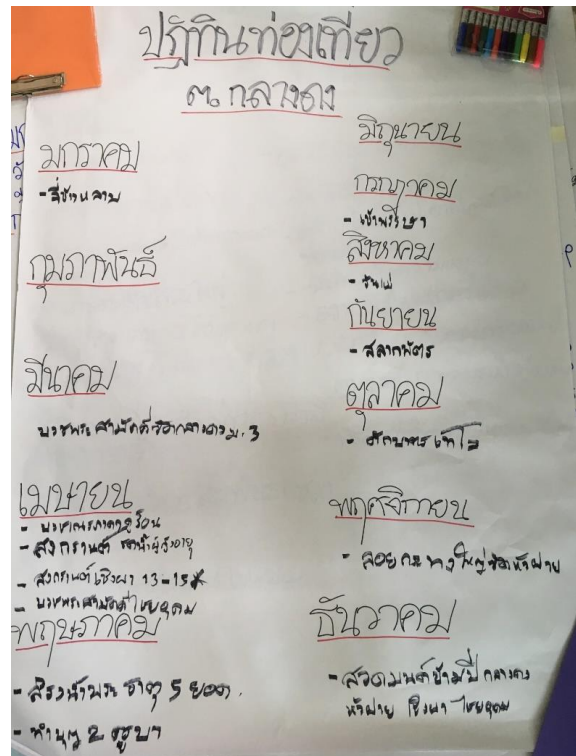 ปฏิทินท่องเที่ยว
ต.กลางดง
มกราคม
- สี่ข้าวหลาม
กุมภาพันธ์
มีนาคม
บวชพระสามัคคีวัดกลางดง ม.3
เมษายน
- บวชเณรภาคฤดูร้อน
- สงกรานต์ รดน้ำผู้สูงอายุ
- สงกรานต์เชิงผา 13-15
- บวชพระสามัคคีไทยอุดม
พฤษภาคม
- สรงน้ำพระธาตุ 5 ยอด.
- ทำบุญ 2 ครูบา
มิถุนายน
กรกฎาคม
- เข้าพรรษา
สิงหาคม
- วันแม่
กันยายน
- สลากภัตร
ตุลาคม
- ตักบาตรเทโว
พฤศจิกายน
- ลอยกระทงใหญ่วัดหัวฝาย
ธันวาคม
- สวดมนต์ข้ามปี กลางดง
หัวฝาย เชิงผา ไทยอุดม